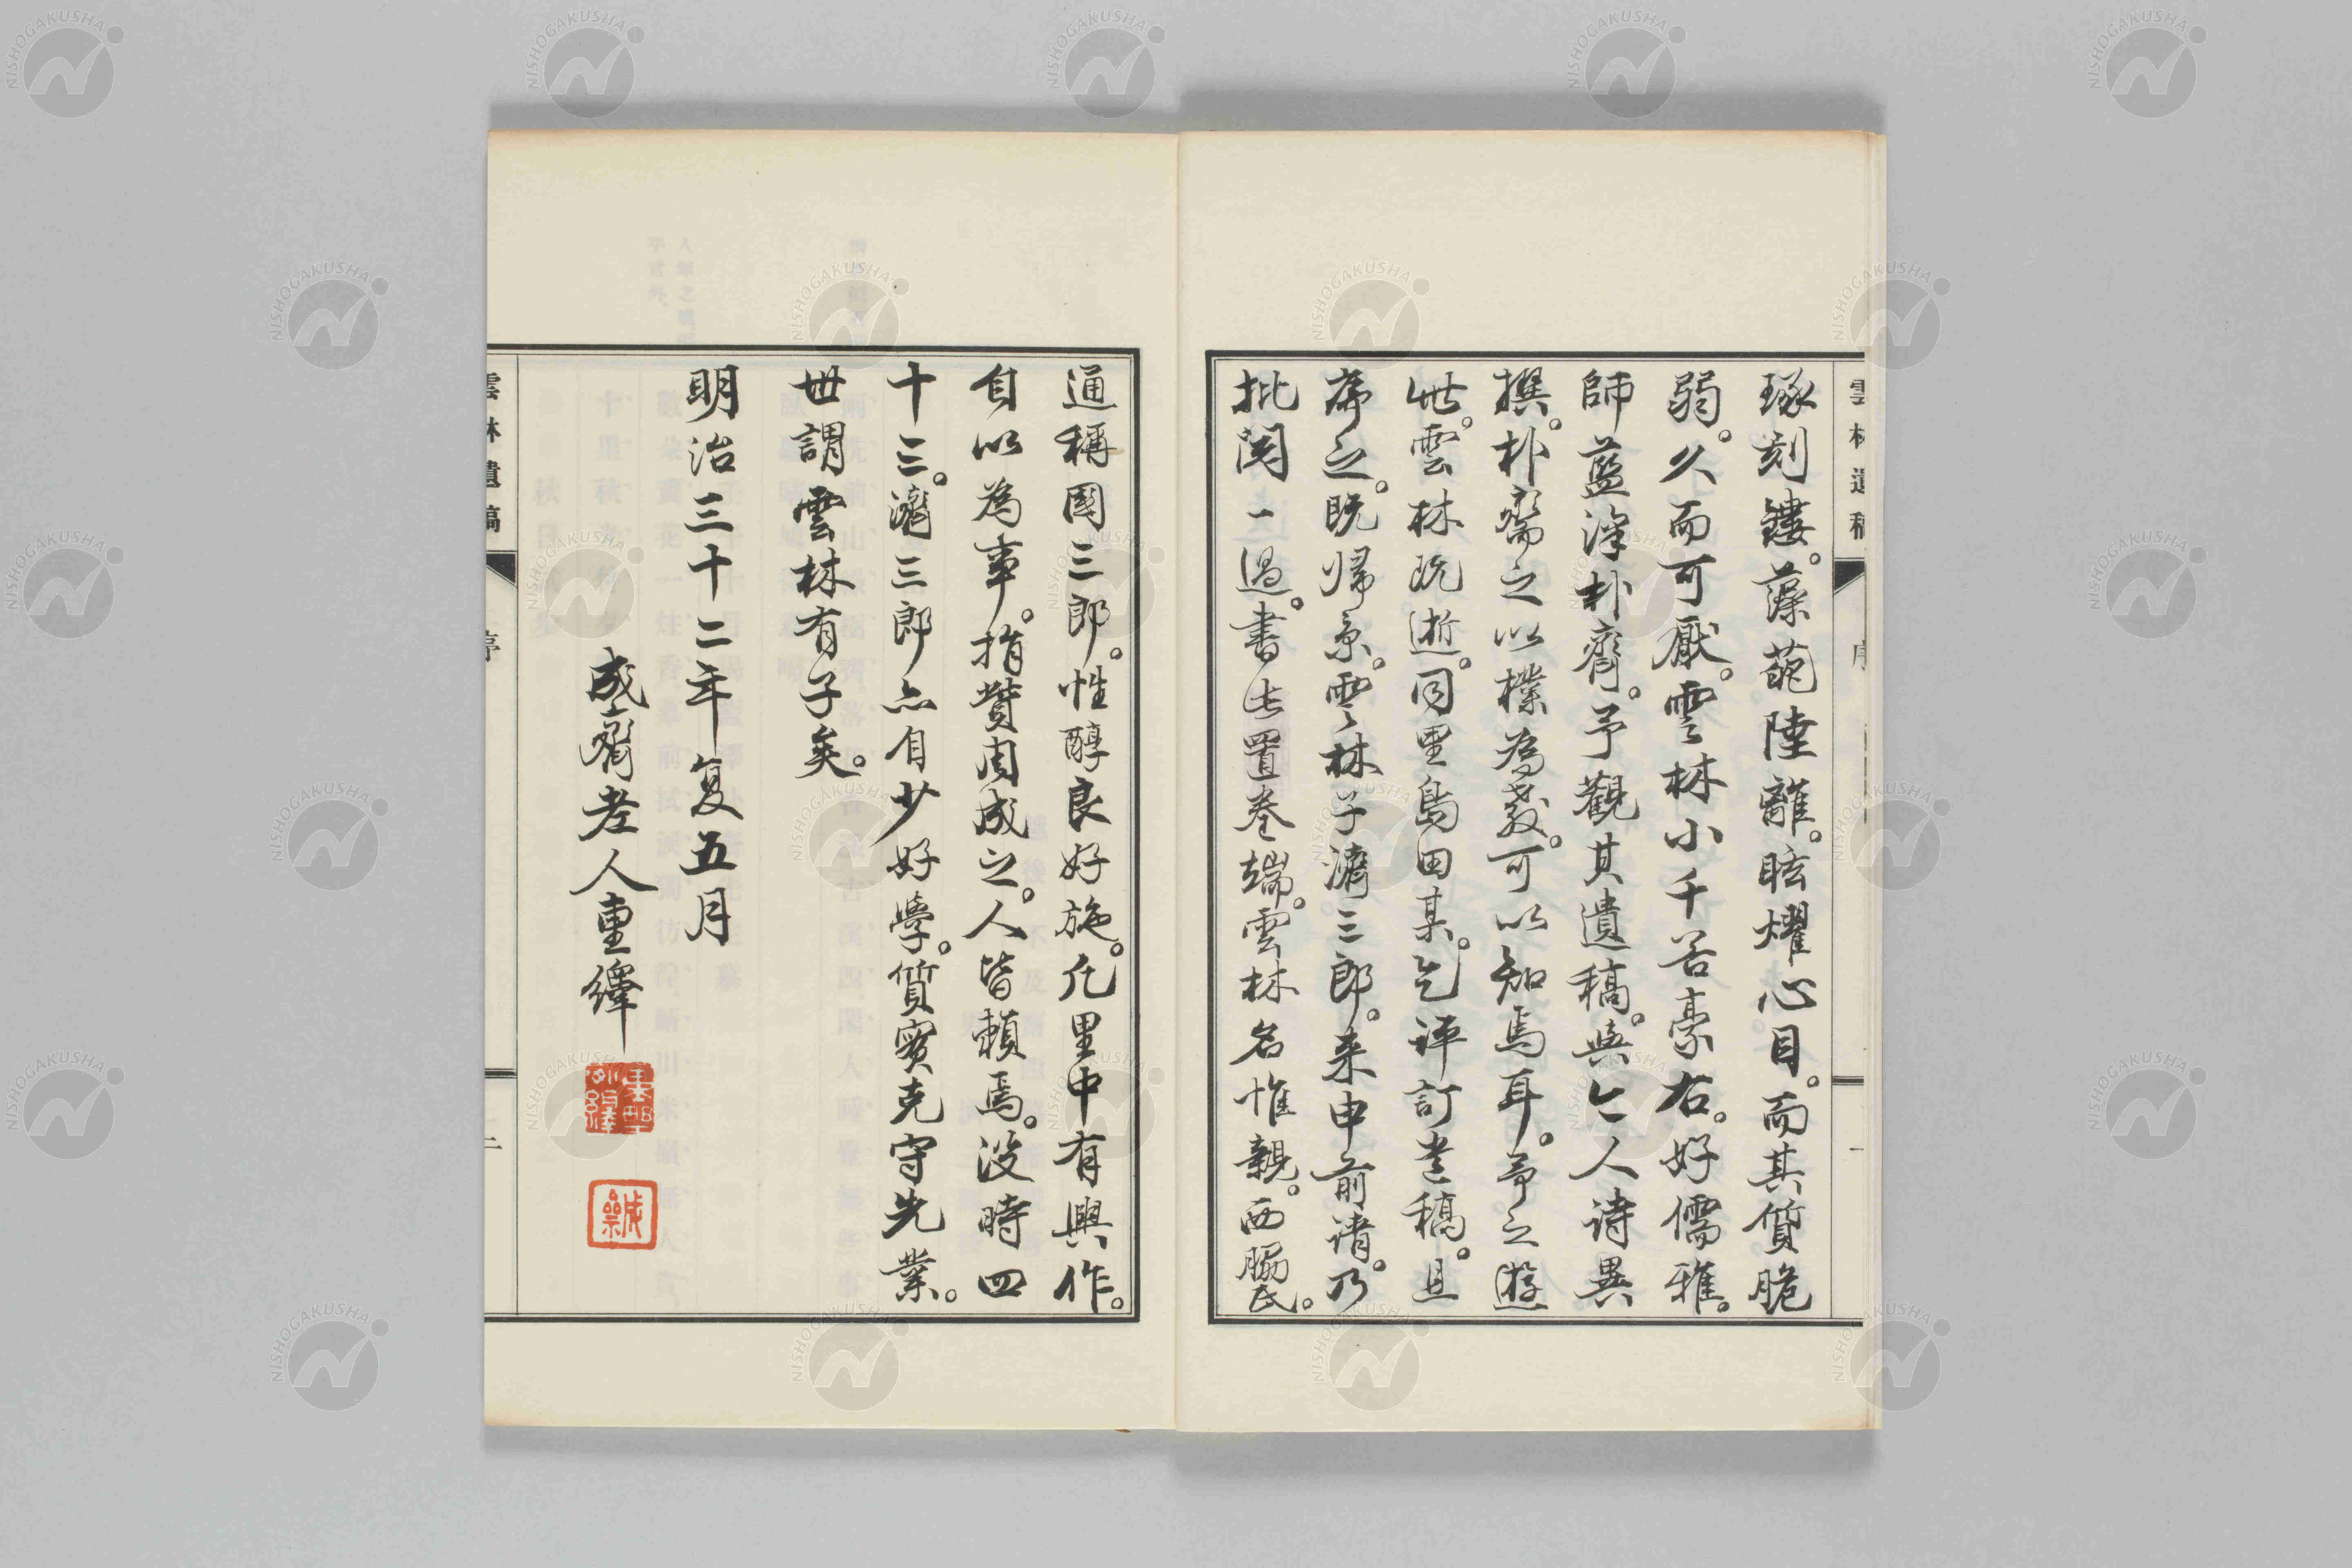 琢刻鏤。藻葩陸離。眩燿心目。而其質脆
弱。久而可厭。雲林小千谷豪右。好儒雅。
師藍澤朴齋。予觀其遺稿。與今人詩異
撰。朴齋之以樸為教。可以知焉耳。予之遊
此。雲林既逝。同里島田某。乞評訂遺稿。且
序之。既歸京。雲林子濟三郎。来申前請。乃
批閱一過。書此置卷端。雲林名惟親。西脇氏。
通稱國三郎。性醇良好施。凡里中有興作。
自以為事。捐貲周成之。人皆賴焉。沒時四
十三。濟三郎亦自少好學。質實克守先業。
世謂雲林有子矣。
明治三十二年夏五月
成齋老人重繹
雲林遺稿
序
一
雲林遺稿
序
二
NISHOGAKUSHA